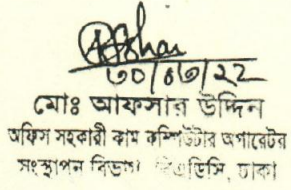 ৩০/০৬/২২
মোঃ আফসার উদ্দিন
অফিস সহকারী কাম কম্পিউটার অপারেটর
সংস্থাপন বিভাগ বিএডিসি, ঢাকা